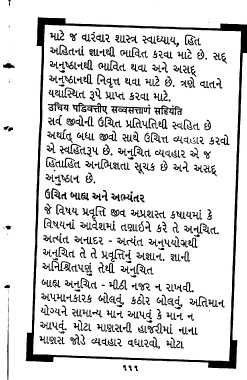 માટે જ વારંવાર શાસ્ત્ર સ્વાધ્યાય, હિત
અહિતનાં જ્ઞાનથી ભાવિત કરવા માટે છે. સદ્
અનુષ્ઠાનથી ભાવિત થવા અને અસદ્
અનુષ્ઠાનથી નિવૃત્ત થવા માટે છે. ત્રણે વાતને
યથાસ્થિત રૂપે પ્રાપ્ત કરવા માટે.
उचिय पडिवत्तीए सव्वसत्ताणं सहियंति
સર્વ જીવોની ઉચિત પ્રતિપતિથી સ્વહિત છે
અર્થાત્ બધા જીવો સાથે ઉચિત્ત વ્યવહાર કરવો
એ સ્વહિતરૂપ છે. અનુચિત વ્યવહાર એ જ
હિતાહિત અનભિજ્ઞતા સૂચક છે અને અસદ્
અનુષ્ઠાન છે.
ઉચિત બાહ્ય અને અભ્યંતર
જે વિષય પ્રવૃત્તિ જીવ અપ્રશસ્ત કષાયમાં કે
વિષયનાં આવેશમાં તણાઈને કરે તે અનુચિત.
અત્યંત અનાદર - અત્યંત અનુપયોગથી
અનુચિત તે તે પ્રવૃત્તિનું અજ્ઞાન. જ્ઞાની
અનિશ્રિતપણું તેથી અનુચિત
બાહ્ય અનુચિત - મીઠી નજર ન રાખવી.
અપમાનકારક બોલવું, કઠોર બોલવું, અતિમાન
યોગ્યને સામાન્ય માન આપવું કે માન ન
આપવું. મોટા માણસની હાજરીમાં નાના
માણસ જોડે વ્યવહાર વધારવો, મોટા
૧૧૧